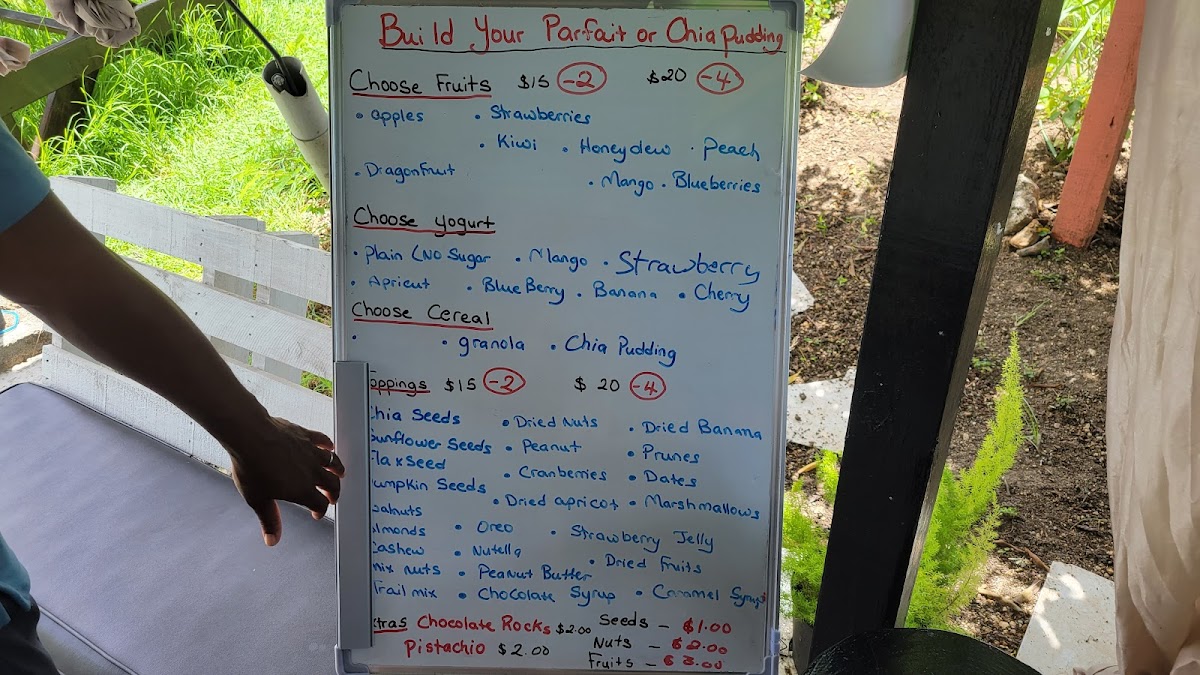 Build Your Parfait or Chia Pudding
Choose Fruits $15 -2 $20 -4
• apples • Strawberries
• Kiwi • Honeydew • Peach
• Dragonfruit • Mango • Blueberries
Choose yogurt
• Plain (No Sugar • Mango • Strawberry
• Apricut • BlueBerry • Banana • Cherry
Choose Cereal
• • granola • Chia Pudding
oppings $15 -2 $20 -4
hia Seeds • Dried Nuts • Dried Banana
unflower Seeds • Peanut • Prunes
laxSeed • Cranberries • Dates
umpkin Seeds • Dried apricot • Marshmallows
alnuts
lmonds • Oreo • Strawberry Jelly
ashew • Nutella • Dried Fruits
mix nuts • Peanut Butter
Trail mix • Chocolate Syrup • Caramel Syrup
tras Chocolate Rocks $2.00 Seeds - $1.00
Pistachio $2.00 Nuts - $2.00
Fruits - $3.00